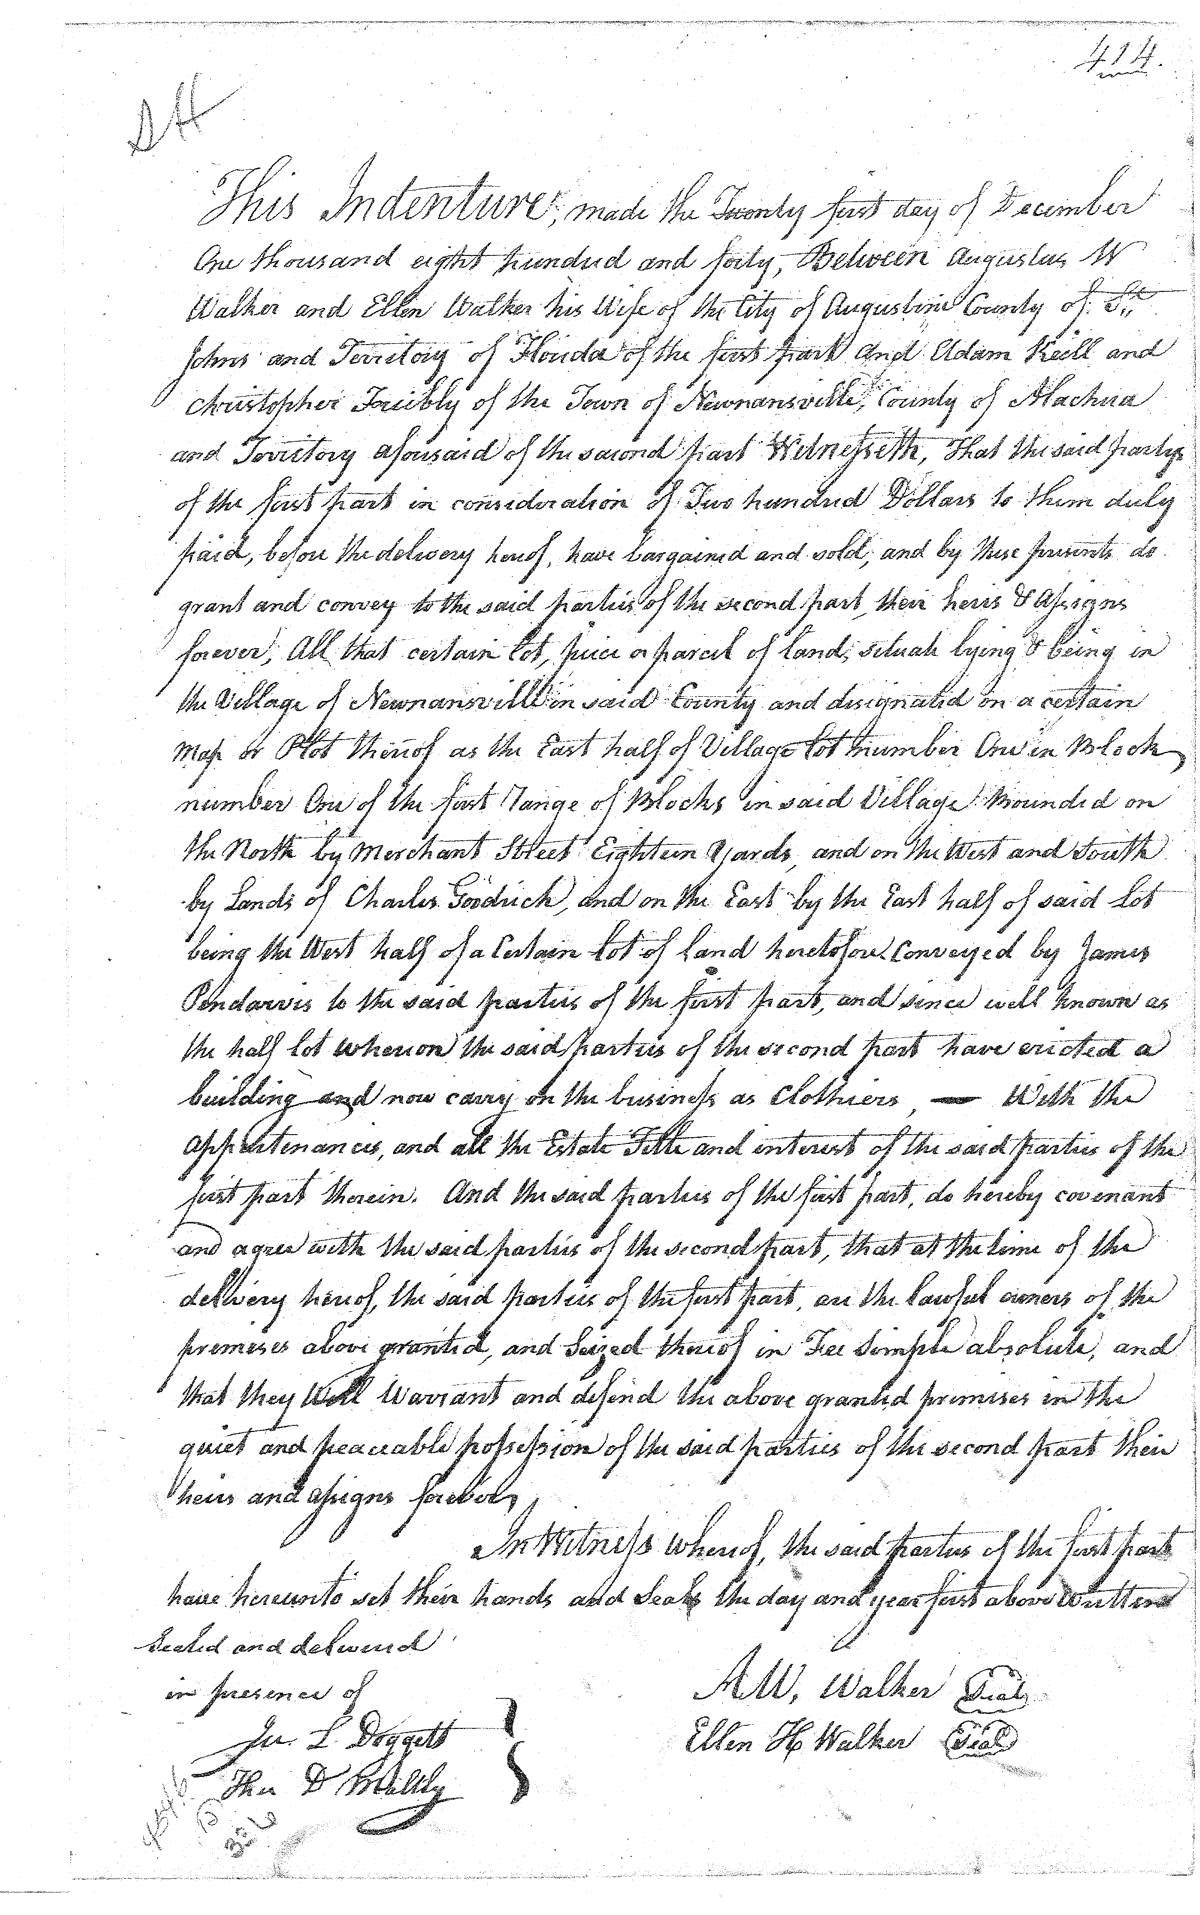 414.
This Indenture, made the Twenty first day of December
One thousand eight hundred and forty, Between Augustus W
Walker and Ellen Walker his Wife of the City of Augustine County of St
Johns and Territory of Florida of the first part and Adam Keill and
Christopher of the Town of Newnansville, County of Alachua
and Territory aforesaid of the second part Witnesseth, That the said partys
of the first part in consideration of Two hundred Dollars to them duly
paid, before the delivery hereof, have bargained and sold, and by these presents do
grant and convey to the said parties of the second part, their heirs & assigns
forever, All that certain lot, piece or parcel of land, situate lying & being in
the Village of Newnansville in said County and designated on a certain
Map or Plot thereof as the East half of Village lot number One in Block
number One of the first range of Blocks in said Village Bounded on
the North by Merchant Street Eighteen Yards, and on the West and South
by Lands of Charles Goodrich, and on the East by the East half of said Lot
being the West half of a Certain Lot of land heretofore Conveyed by James
Pendarvis to the said parties of the first part, and since well known as
the half lot whereon the said parties of the second part have erected a
building and now carry on the business as Clothiers, — With the
appertenances, and all the Estate Title and interest of the said parties of the
first part therein. And the said parties of the first part, do hereby covenant
and agree with the said parties of the second part, that at the time of the
delivery hereof, the said parties of the first part, are the lawful owners of the
premeses above granted, and Seized thereof in Fee Simple absolute, and
that they Will Warrant and defend the above granted premises in the
quiet and peaceable possession of the said parties of the second part their
heirs and assigns forever,
In Witness Whereof, the said parties of the first part
have hereunto set their hands and Seals the day and year first above Written
Sealed and delivered
in presence of
Jn. L. Doggett
Thos D
A. W. Walker Seal
Ellen H Walker Seal